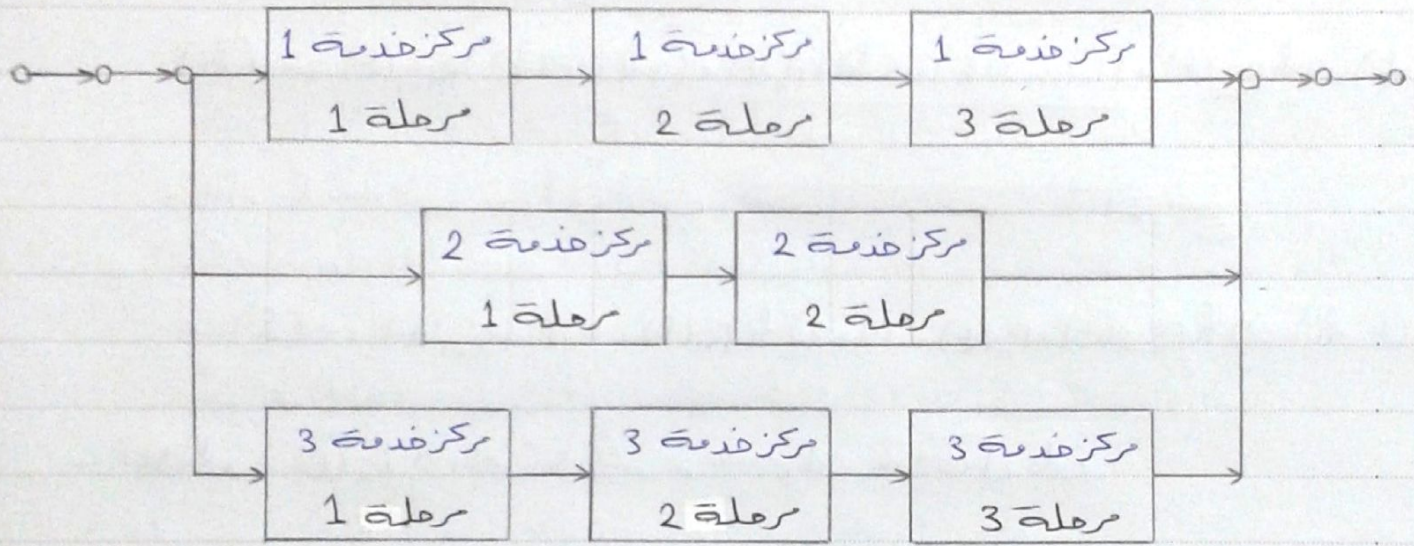 مركز خدمة 1
مرحلة 1
مركز خدمة 1
مرحلة 2
مركز خدمة 1
مرحلة 3
مركز خدمة 2
مرحلة 1
مركز خدمة 2
مرحلة 2
مركز خدمة 3
مرحلة 1
مركز خدمة 3
مرحلة 2
مركز خدمة 3
مرحلة 3